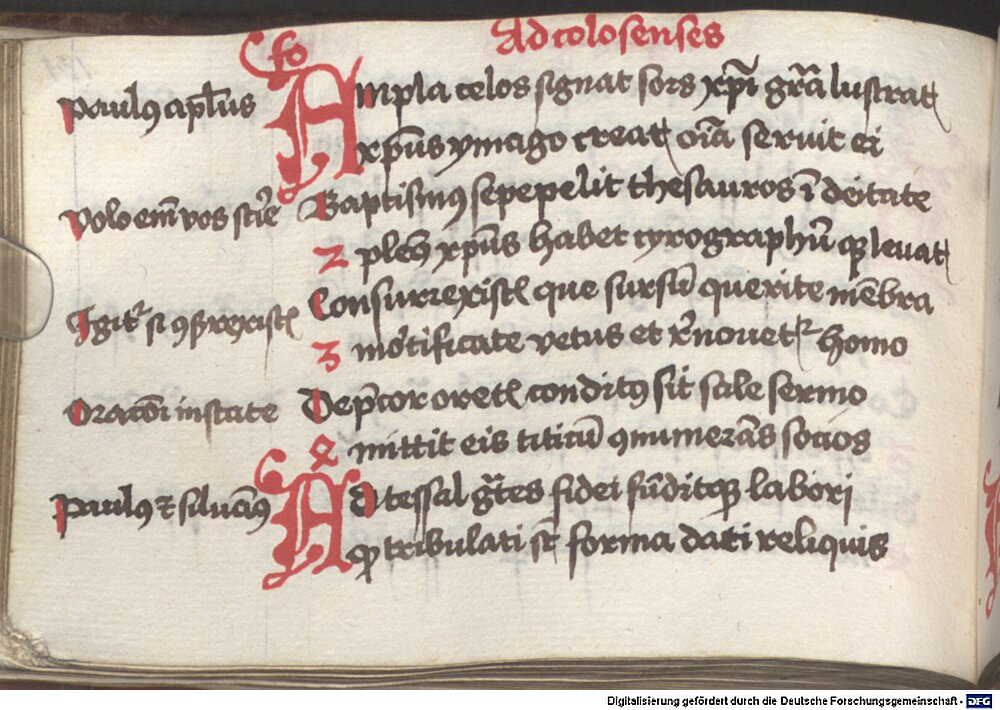 Ad colosenses
Paulus apl̄us Ampla celos signat sors xp̄i gr̄a lustrat
xp̄us ymago creat oīa seruit ei
Volo em̄ vos scir̄e Baptismus sepepelit thesauros ī deitate
2 xp̄us habet cyrographū leuat
Igit̄ si Consurrexist que sursū querite mēbra
3 mortificate vetus et homo
Oracōi instate Dep̄cor oret conditus sit sale sermo
mittit eis titicū ꝯnumerās socios
Paulus ⁊ siluan̄us Ad tessal gr̄tes fidei labori
ꝙ tribulati st̄ forma dati reliquis
Digitalisierung gefördert durch die Deutsche Forschungsgemeinschaft - DFG